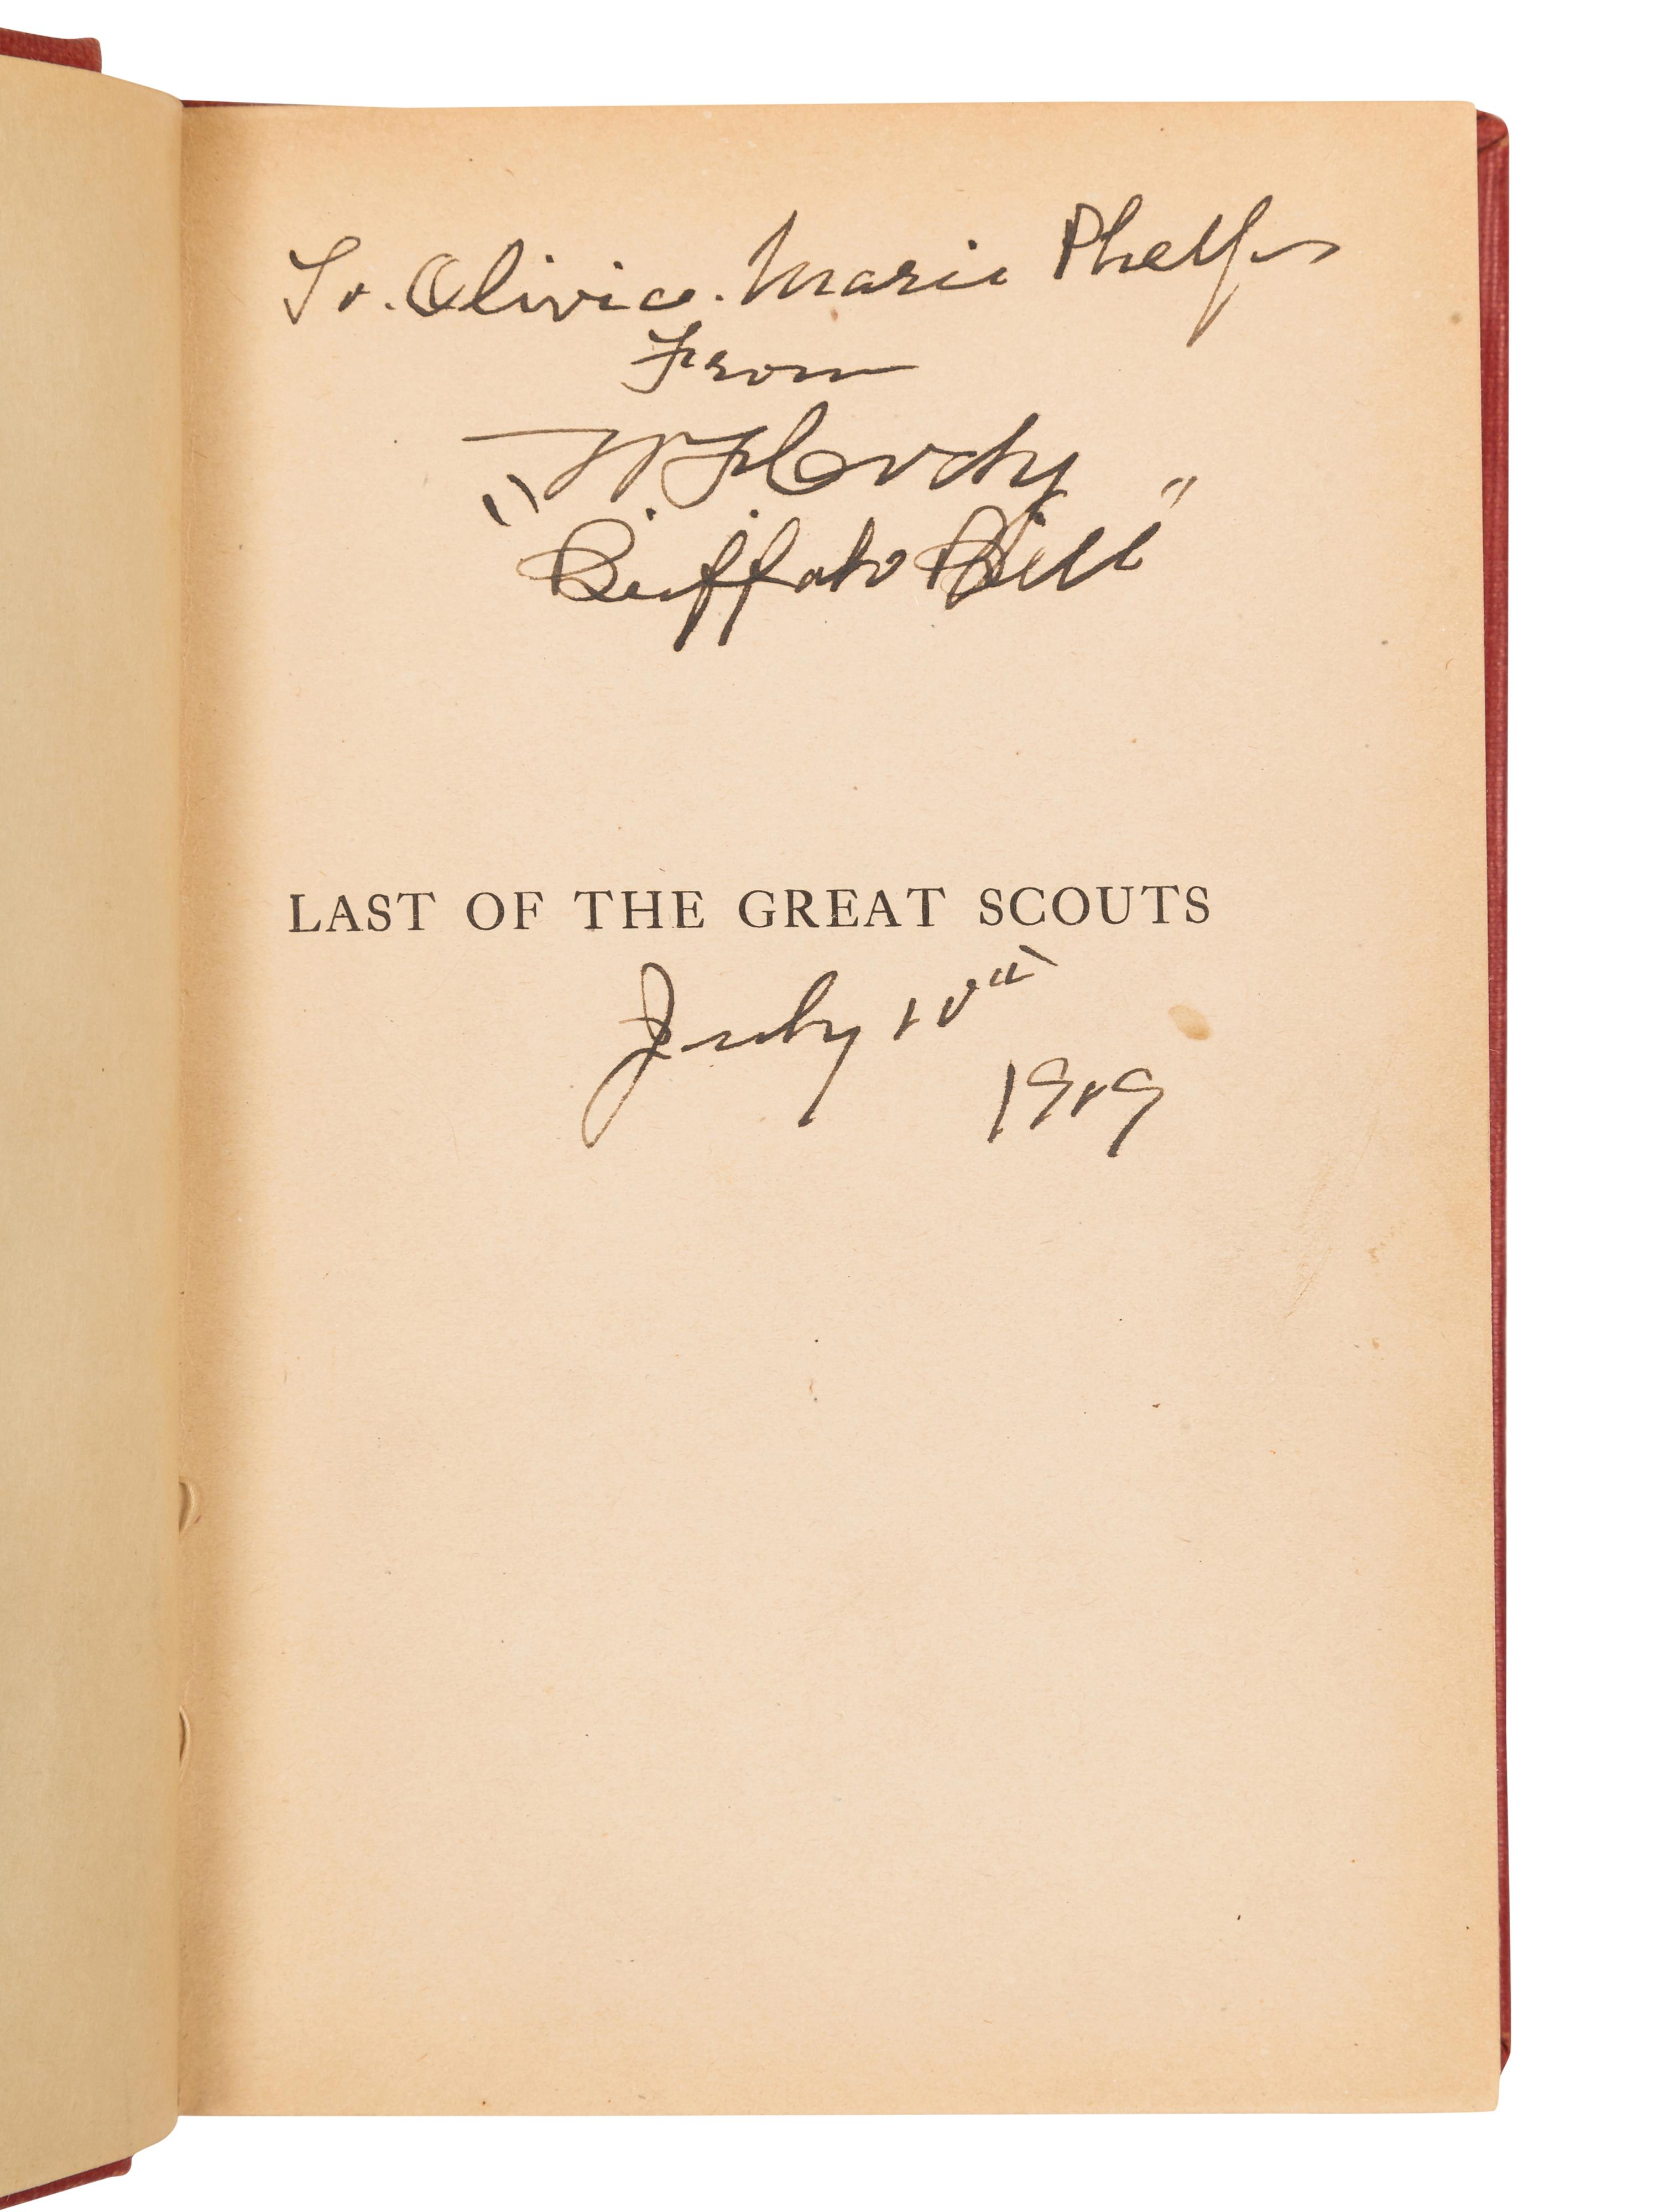 To. Olivia. Marie Phelps
From
W F Cody
"Buffalo Bill"
LAST OF THE GREAT SCOUTS
July 10th
1909